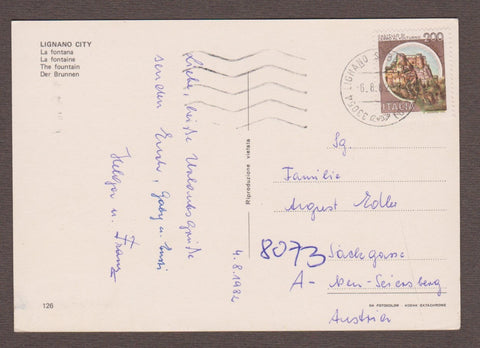 LIGNANO CITY
La fontana
La fontaine
The fountain
Der Brunnen
Liebe, heiße Urlaubsgrüße
senden Euch, Gaby u. Susi
Helga u. Franz
4.8.1982
126
Riproduzione vietata
200
ITALIA
LIGNANO
33054
6.8.
Sg.
Familie
August Edler
8073
Sackgasse
A- Neu-Seiersberg
Austria
GA FOTOKOLOR - KODAK EKTACHROME